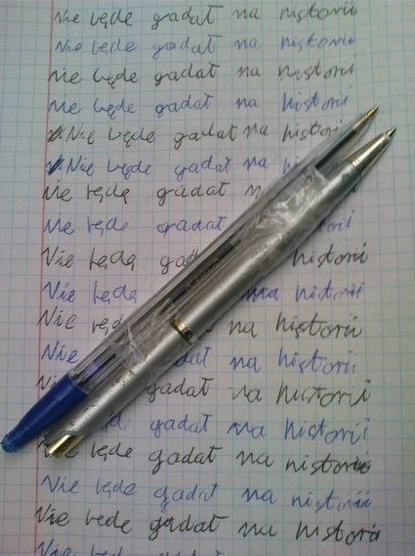 Nie będę gadał na historii
Nie będę gadał na historii
Nie będę gadał na historii
Nie będę gadał na historii
Nie będę gadał na historii
Nie będę gadał na historii
Nie będę gadał historii
Nie będę gadał historii
Nie będę gad historii
Nie będę na historii
Nie będ na historii
Nie na historii
Nie gadał na historii
Nie będę gadał na historii
Nie będę gadał na historii
Nie będę gadał na historii
Nie będę gadał na historii